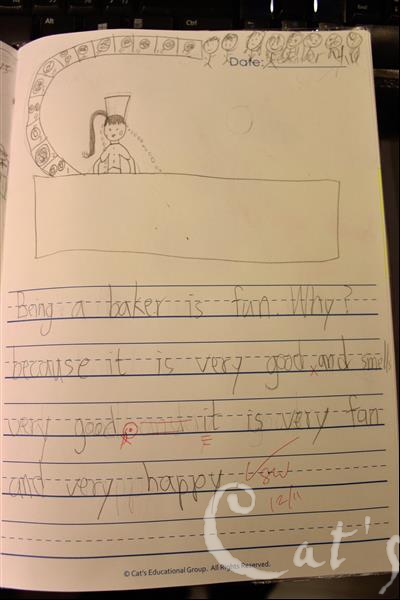 Alt
Ctrl
Date: October 12/11
Being a baker is fun. Why?
because it is very good and smells
very good it is very fan
and very happy
12/11
© Cat's Educational Group. All Rights Reserved.
Cat's